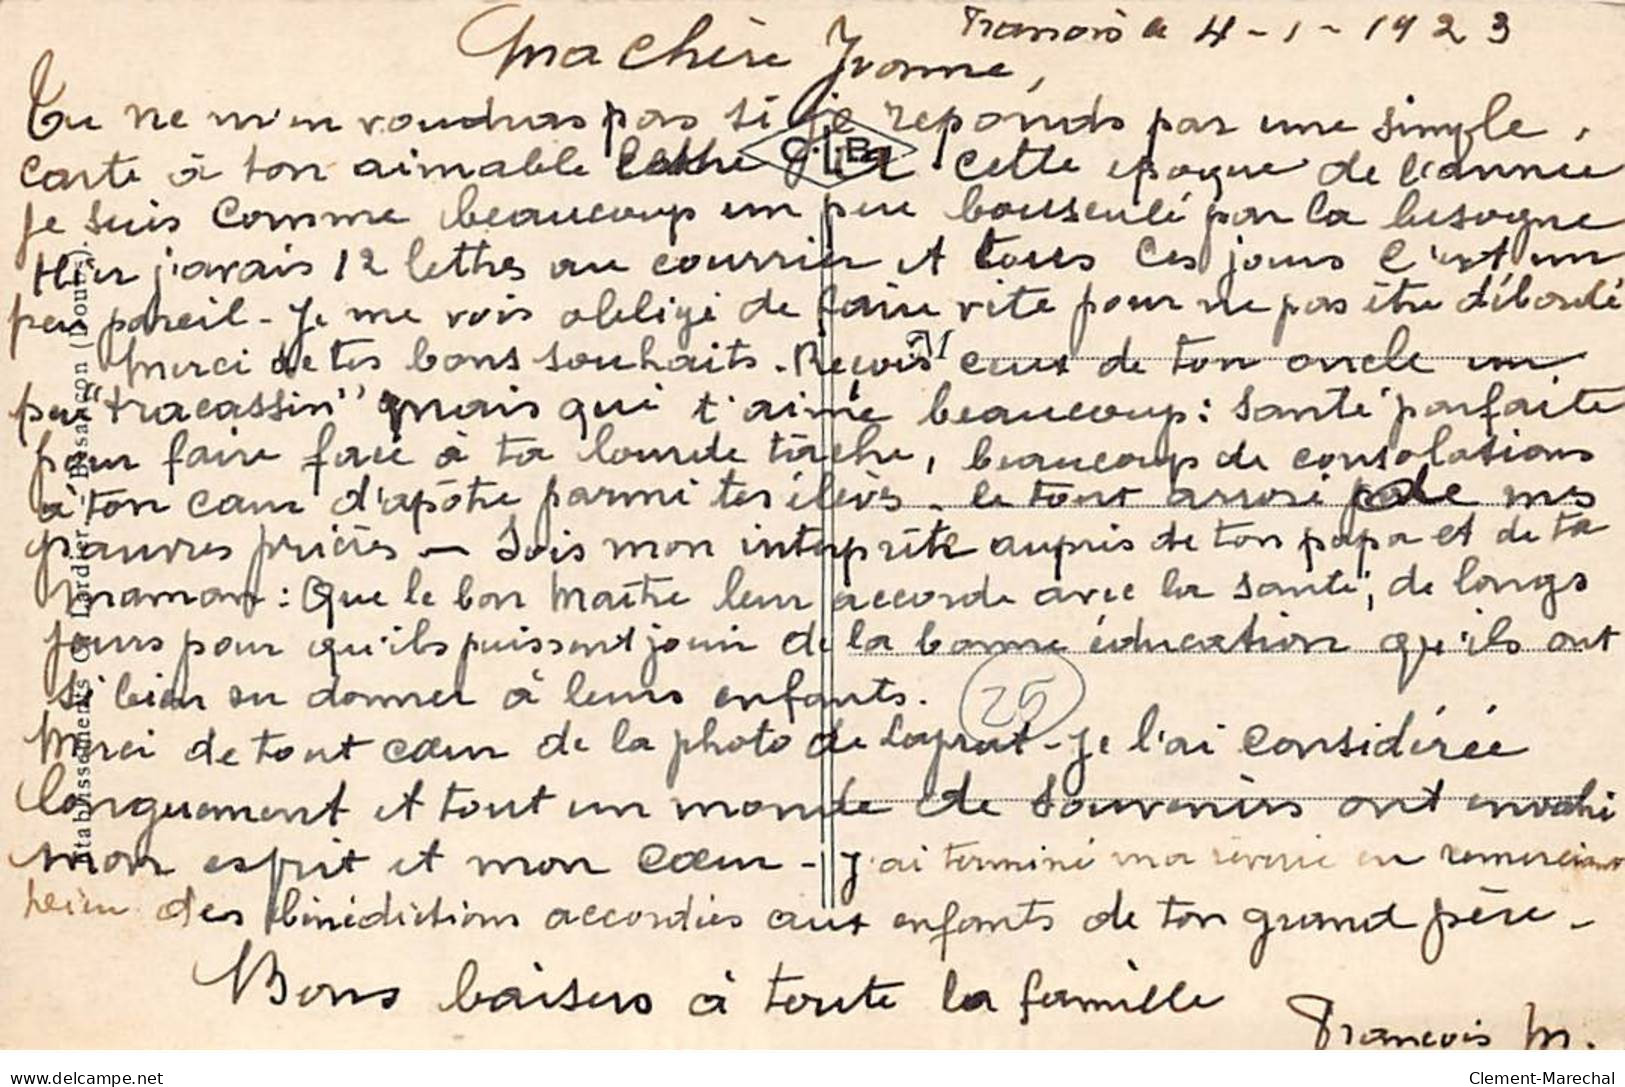 Franois le 4-1-1923
Ma chère Yvonne,
Tu ne m'en voudras pas si je reponds par une simple
carte à ton aimable lettre. A cette epoque de l'année
je suis comme beaucoup un peu bousculé par la besogne
Hier j'avais 12 lettres au courrier et tous ces jours c'est un
peu pareil - Je me vois obligé de faire vite pour ne pas être débordé
Merci de tes bons souhaits. Reçois ceux de ton oncle un
peu "tracassin" mais qui t'aime beaucoup : santé parfaite
pour faire face à ta lourde tâche, beaucoup de consolations
à ton cœur d'apôtre parmi tes élèves - le tout arrosé de mes
pauvres prières - Sois mon interprète auprès de ton papa et de ta
maman : Que le bon Maître leur accorde avec la santé, de longs
jours pour qu'ils puissent jouir de la bonne éducation qu'ils ont
si bien su donner à leurs enfants.
25
Merci de tout cœur de la photo de Laprat - Je l'ai considérée
longuement et tout un monde de souvenirs ont envahi
mon esprit et mon cœur - J'ai terminé ma rêverie en remerciant
des bénédictions accordées aux enfants de ton grand père -
Bons baisers à toute la famille
François M.
C.L.B
Etablissements C. Lardier - Besançon (Doubs).
delcampe.net
Clement-Marechal